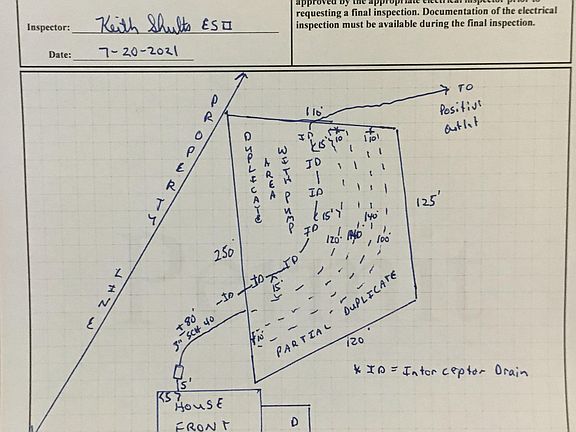 approved by the appropriate electrical inspector prior to
requesting a final inspection. Documentation of the electrical
inspection must be available during the final inspection.
Inspector: Keith Shults ESII
Date: 7-20-2021
PROPERTY LINE
TO
Positive
outlet
110'
DUPLICATE
AREA
WITH PUMP
ID
15'
10'
10'
ID
ID
15'
ID
ID
ID
ID
15'
120'
140'
100'
125'
250'
±80'
3" SCH 40
10'
PARTIAL DUPLICATE
120'
5'
* ID = Interceptor Drain
HOUSE
FRONT
D